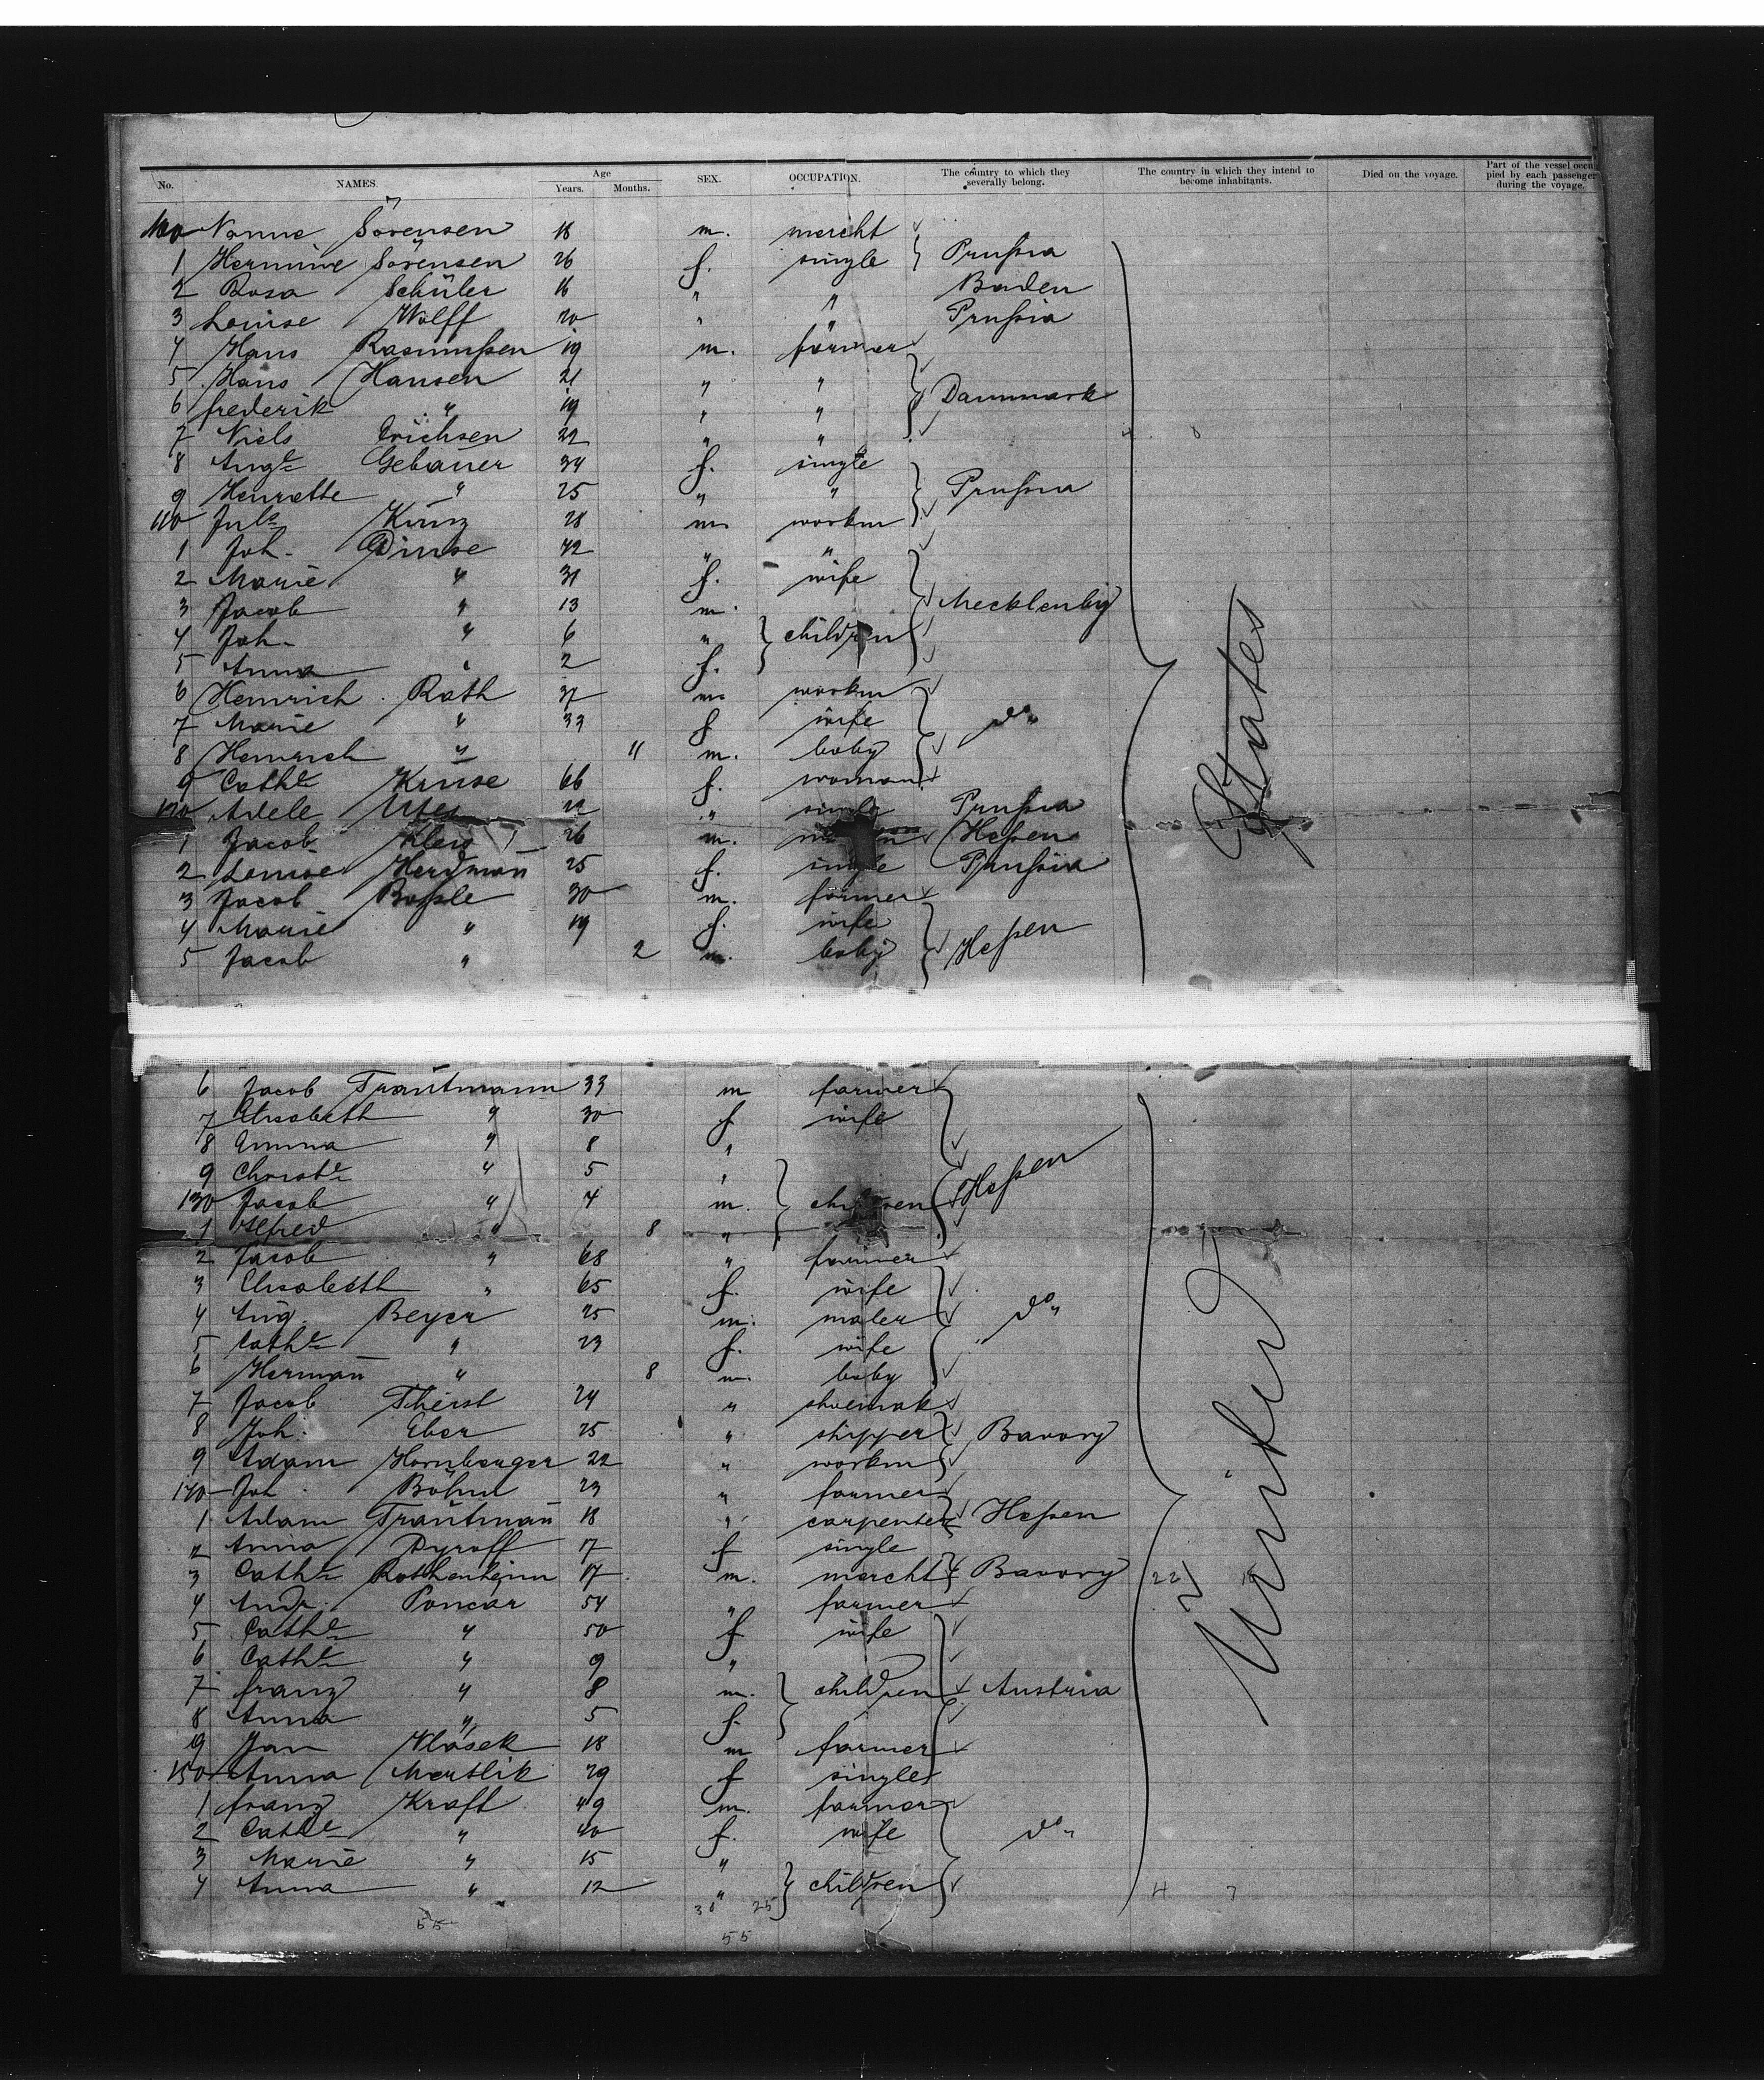 No. NAMES. Age Years. Months. SEX. OCCUPATION. The country to which they severally belong. The country in which they intend to become inhabitants. Died on the voyage. Part of the vessel occupied by each passenger during the voyage.
100 Nanne Sörensen 18 m. mercht
1 Hermine Sörensen 26 f. single Prussia
2 Rosa Schüler 16 " " Baden
3 Louise Wolff 20 " " Prussia
4 Hans Rasmussen 19 m. farmer
5 Hans Hansen 21 " " Danmark
6 frederik " 19 " "
7 Niels Erichsen 22 " "
8 Augte Gebauer 34 f. single
9 Henriette " 25 " " Prussia
110 Juls Kunz 28 m. workm
1 Joh. Dinse 42 " "
2 Marie " 31 f. wife
3 Jacob " 13 m. Mecklenbg
4 Joh. " 6 " children
5 Anna " 2 f.
6 Heinrich Rath 37 m. workm
7 Marie " 33 f wife do"
8 Heinrich " 11 m. baby
9 Cathe Kruse 66 f. woman
120 Adele 22 " single Prussia
1 Jacob Klein 26 m. Hessen
2 Louise Herdman 25 f. single Prussia
3 Jacob Bassle 30 m. farmer
4 Marie " 19 f. wife Hessen
5 Jacob " 2 m. baby
6 Jacob Trautmann 33 m farmer
7 Elisabeth " 30 f wife
8 Emma " 8 "
9 Christe " 5 " Hessen
130 Jacob " 4 m. children
1 Alfred " 8 "
2 Jacob " 68 " farmer
3 Elisabeth " 65 f. wife
4 Aug. Beyer 25 m. maler do"
5 Cathe " 23 f. wife
6 Herman " 8 m. baby
7 Jacob Theirst 24 " shoemak
8 Joh. Eber 25 " shipper Bavary
9 Adam Hornberger 22 " workm
140 Joh. Böhm 23 " farmer
1 Adam Trautman 18 " carpenter Hessen
2 Anna Dyroff 17 f single
3 Cathe Rothenheim 17 m. mercht Bavary 22
4 Andr. Poncar 54 " farmer
5 Cathe " 50 f wife
6 Cathe " 9 "
7 franz " 8 m. children Austria
8 Anna " 5 f.
9 Jan Wlasek 18 m farmer
150 Anna Mertlik 29 f single
1 franz Kraft 49 m. farmer
2 Cathe " 40 f. wife do"
3 Marie " 15 "
4 Anna " 12 " children
30 25
55
55
United States